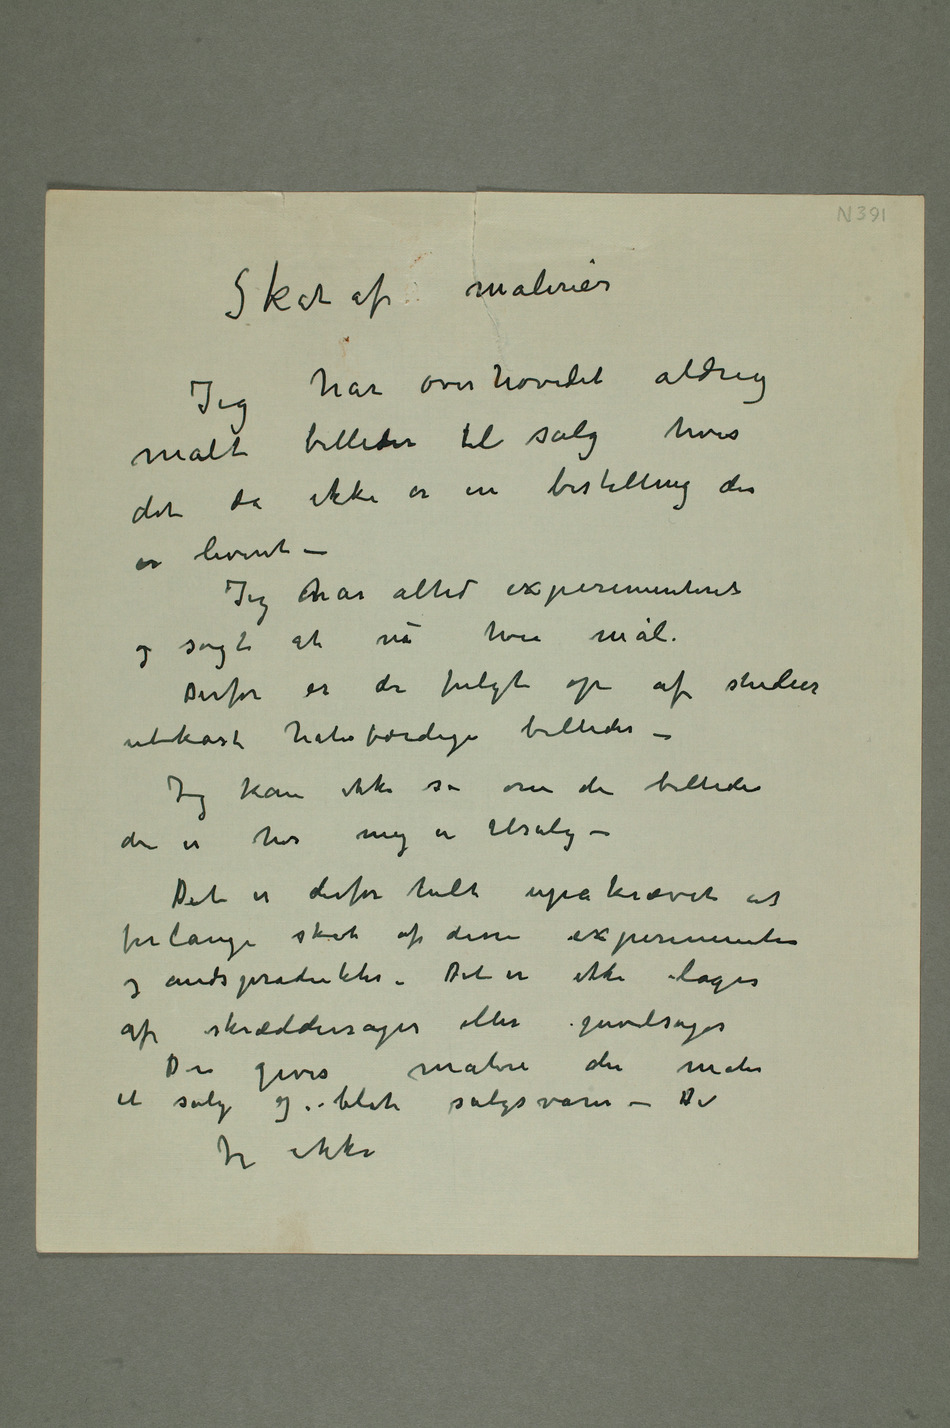 N391
Skat af malerier
Jeg har overhovedet aldrig
malt billeder til salg hvis
det da ikke er en bestilling der
er leveret –
Jeg har altid experimenteret
og søgt at nå hvert mål.
Derfor er der fulgt op af studier
utkast halvfærdige billeder –
Jeg kan ikke si om de billeder
der er hos mig er tilsalg –
Det er derfor helt upåkrævet at
forlange skat af disse experimenter
og åndsprodukter. Det er ikke lager
af skræddersager eller
Der gives malere der maler
til salg og blot salgsvarer – De
Jeg ikke